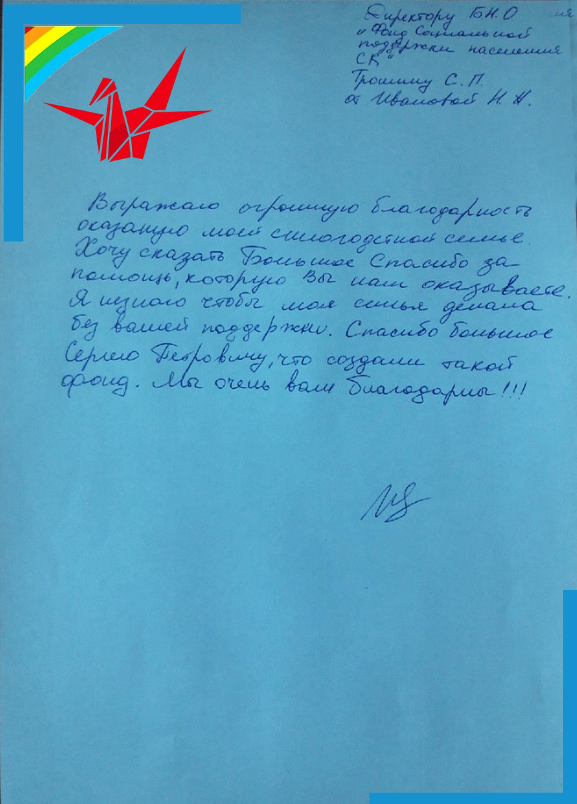 Директору БН.О
"Фонд Социальной
поддержки населения
СК"
Трошину С. П.
от Ивановой Н. Н.
Выражаю огромную благодарность
оказаную моей многодетной семье.
Хочу сказать Большое Спасибо за
помощь, которую Вы нам оказываете.
Я незнаю чтобы моя семья делала
без вашей поддержки. Спасибо большое
Сергею Петровичу, что создали такой
фонд. Мы очень вам благодарны!!!